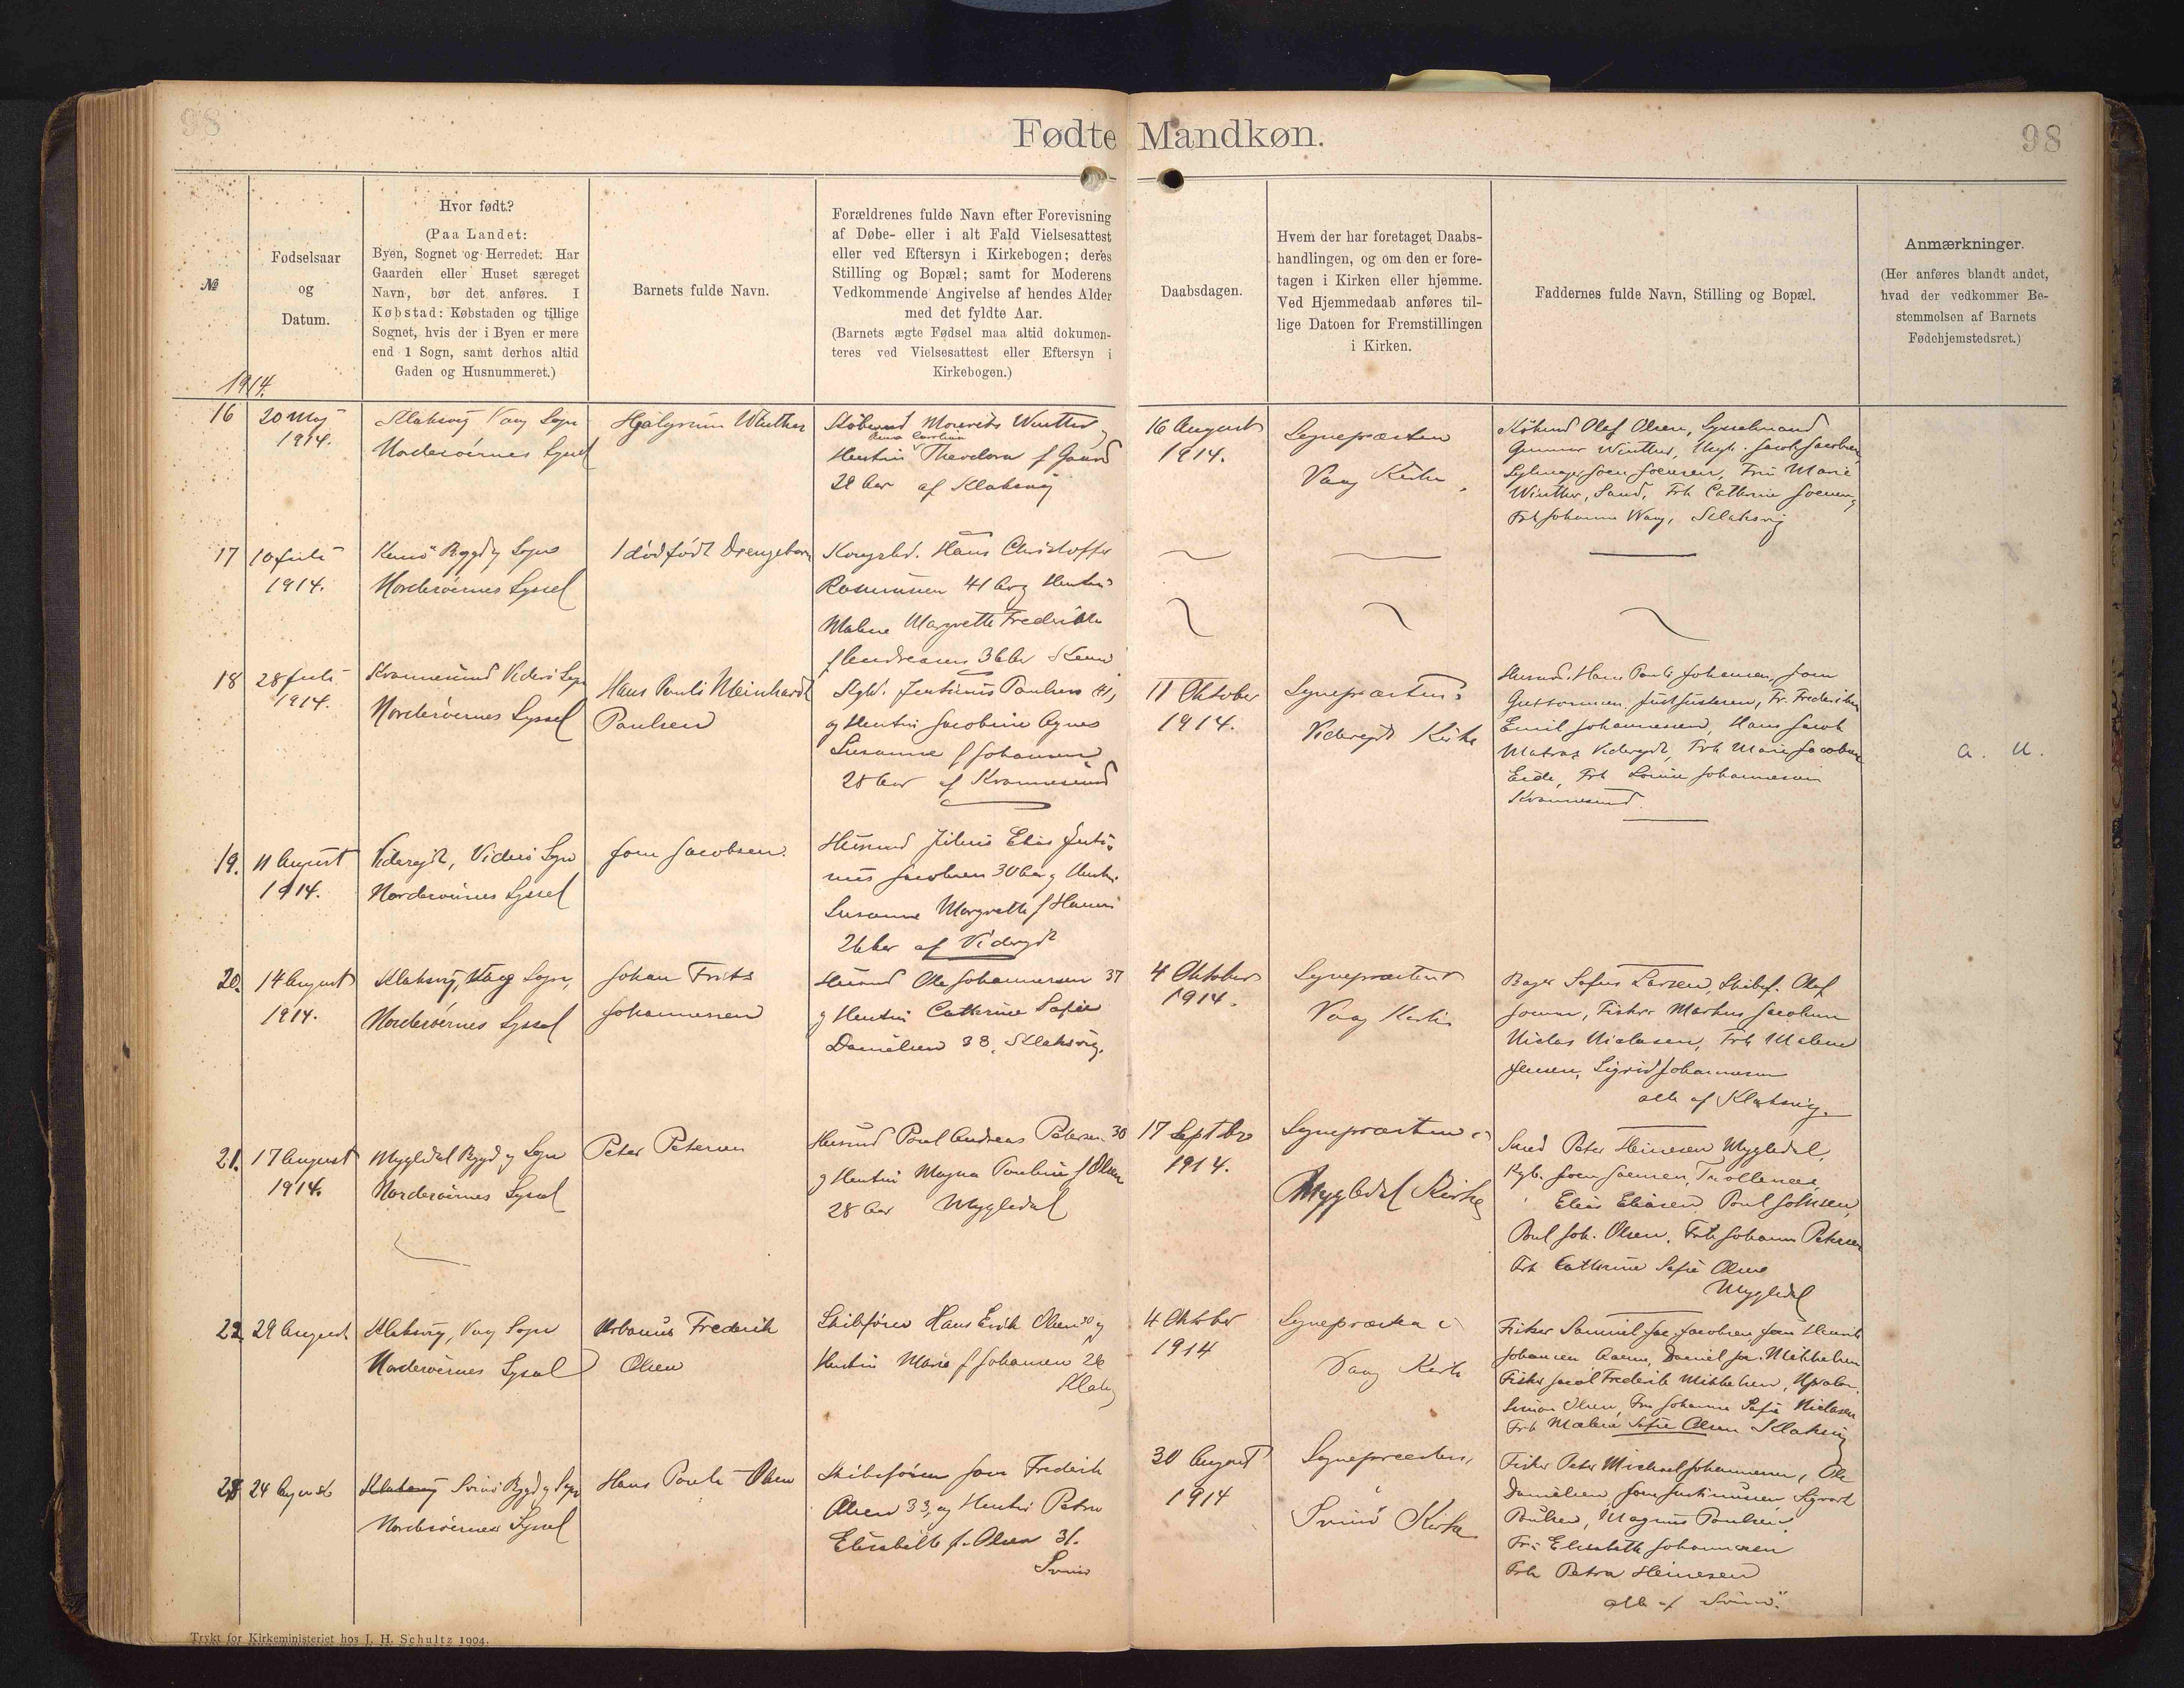 98
Fødte Mandkøn.
98
№
Fødselsaar
og
Datum.
Hvor født?
(Paa Landet:
Byen, Sognet og Herredet: Har
Gaarden eller Huset særeget
Navn, bør det anføres. I
Købstad: Købstaden og tillige
Sognet, hvis der i Byen er mere
end 1 Sogn, samt derhos altid
Gaden og Husnummeret.)
Barnets fulde Navn.
Forældrenes fulde Navn efter Forevisning
af Døbe- eller i alt Fald Vielsesattest
eller ved Eftersyn i Kirkebogen; deres
Stilling og Bopæl; samt for Moderens
Vedkommende Angivelse af hendes Alder
med det fyldte Aar.
(Barnets ægte Fødsel maa altid dokumen-
teres ved Vielsesattest eller Eftersyn i
Kirkebogen.)
Daabsdagen.
Hvem der har foretaget Daabs-
handlingen, og om den er fore-
tagen i Kirken eller hjemme.
Ved Hjemmedaab anføres til-
lige Datoen for Fremstillingen
i Kirken.
Faddernes fulde Navn, Stilling og Bopæl.
Anmærkninger.
(Her anføres blandt andet,
hvad der vedkommer Be-
stemmelsen af Barnets
Fødehjemstedsret.)
1914.
16
20 Maj
1914.
Klaksvig Vaag Sogn
Norderøernes Syssel
Winther
Mourits Winther
Theodora f
28 Aar af Klaksvig
16 August
1914.
Sognepræsten
Vaag Kirke
Købmd Olaf Olsen, Sysselmand
Gunnar Winther, Jacob Jacobsen
Joen Joensen, Fru Marie
Winther, Sand, Frk Cathrine Joensen
Frk Johanne Waag, Klaksvig
17
10 Juli
1914.
Kunø Bygd og Sogn
Norderøernes Syssel
1 dødfødt Drengebarn
Kongsbd. Hans Christoffer
Rasmussen 41 Aar og Hustru
Malene Margrethe Frederikke
f Andreasen 36 Aar Kunø
18
28 Juli
1914.
Kvannesund Viderø Sogn
Norderøernes Syssel
Hans Pauli Meinhardt
Paulsen
Justinus Paulsen 41,
og Hustru Jacobine Agnes
Susanne f Johansen
28 Aar af Kvannesund
11 Oktober
1914.
Sognepræsten i
Viderejde Kirke
Husmd. Hans Pauli Johansen, Joen
Guttormsen, Just Justesen, Fr. Frederiksen
Emil Johannesen, Hans Jacob
Matras Viderejde, Frk Marie Jacobsen
Eide, Frk Johannesen
Kvannesund.
a. u.
19.
11 August
1914.
Viderejde, Viderø Sogn
Norderøernes Syssel
Joen Jacobsen.
Husmd Elias Justi-
nus Jacobsen 30 Aar og Hustru
Susanne Margrethe f Hansen
26 Aar af Viderejde
20.
14 August
1914.
Klaksvig, Vaag Sogn,
Norderøernes Syssel
Johan Frits
Johannesen
Husmd Ole Johannesen 37
og Hustru Cathrine Sofie
Danielsen 38, Klaksvig.
4 Oktober
1914.
Sognepræsten
Vaag Kirke
Bager Sofus Larsen, Skibsf. Olaf
Joensen, Fisker Markus Jacobsen
Niclas Niclasen, Frk Malene
Jensen, Sigrid Johannesen
alle af Klaksvig.
21.
17 August
1914.
Mygledal Bygd og Sogn
Norderøernes Syssel
Peter Petersen
Husmd Poul Andreas Petersen 30
og Hustru Magna Pauline f Olsen
28 Aar Mygledal
17 Septbr
1914.
Sognepræsten i
Mygledal Kirke
Peter Heinesen Mygledal,
Joen Joensen, Trøllenæs,
Elias Eliasen, Poul Johnsen,
Poul Joh. Olsen, Frk Johanne Petersen
Frk Cathrine Sofie Olsen
Mygledal
22.
29 August
Klaksvig, Vaag Sogn
Norderøernes Syssel
Urbanus Frederik
Olsen
Skibsfører Hans Erik Olsen 30 og
Hustru Marie f Johansen 26
Klaksv
4 Oktober
1914
Sognepræsten i
Vaag Kirke
Fisker Samuel Jac. Jacobsen Joen Henrik
Johansen Daniel Jac. Mikkelsen
Fisker Jacob Frederik Mikkelsen,
Simon Olsen, Fru Johanne Sofie Niclasen
Frk Malene Sofie Olsen Klaksvig
23
24 August
Klaksvig Svinø Bygd og Sogn
Norderøernes Syssel
Hans Pauli Olsen
Skibsfører Joen Frederik
Olsen 33, og Hustru Petra
Elisabeth f. Olsen 31.
Svinø
30 August
1914
Sognepræsten,
Svinø Kirke
Fisker Peter Michael Johannesen, Ole
Danielsen, Joen Justinussen, Sigvart
Poulsen, Magnus Poulsen,
Fru Elisabeth Johannesen
Frk Petra Heinesen
alle af Svinø.
Trykt for Kirkeministeriet hos J. H. Schultz 1904.